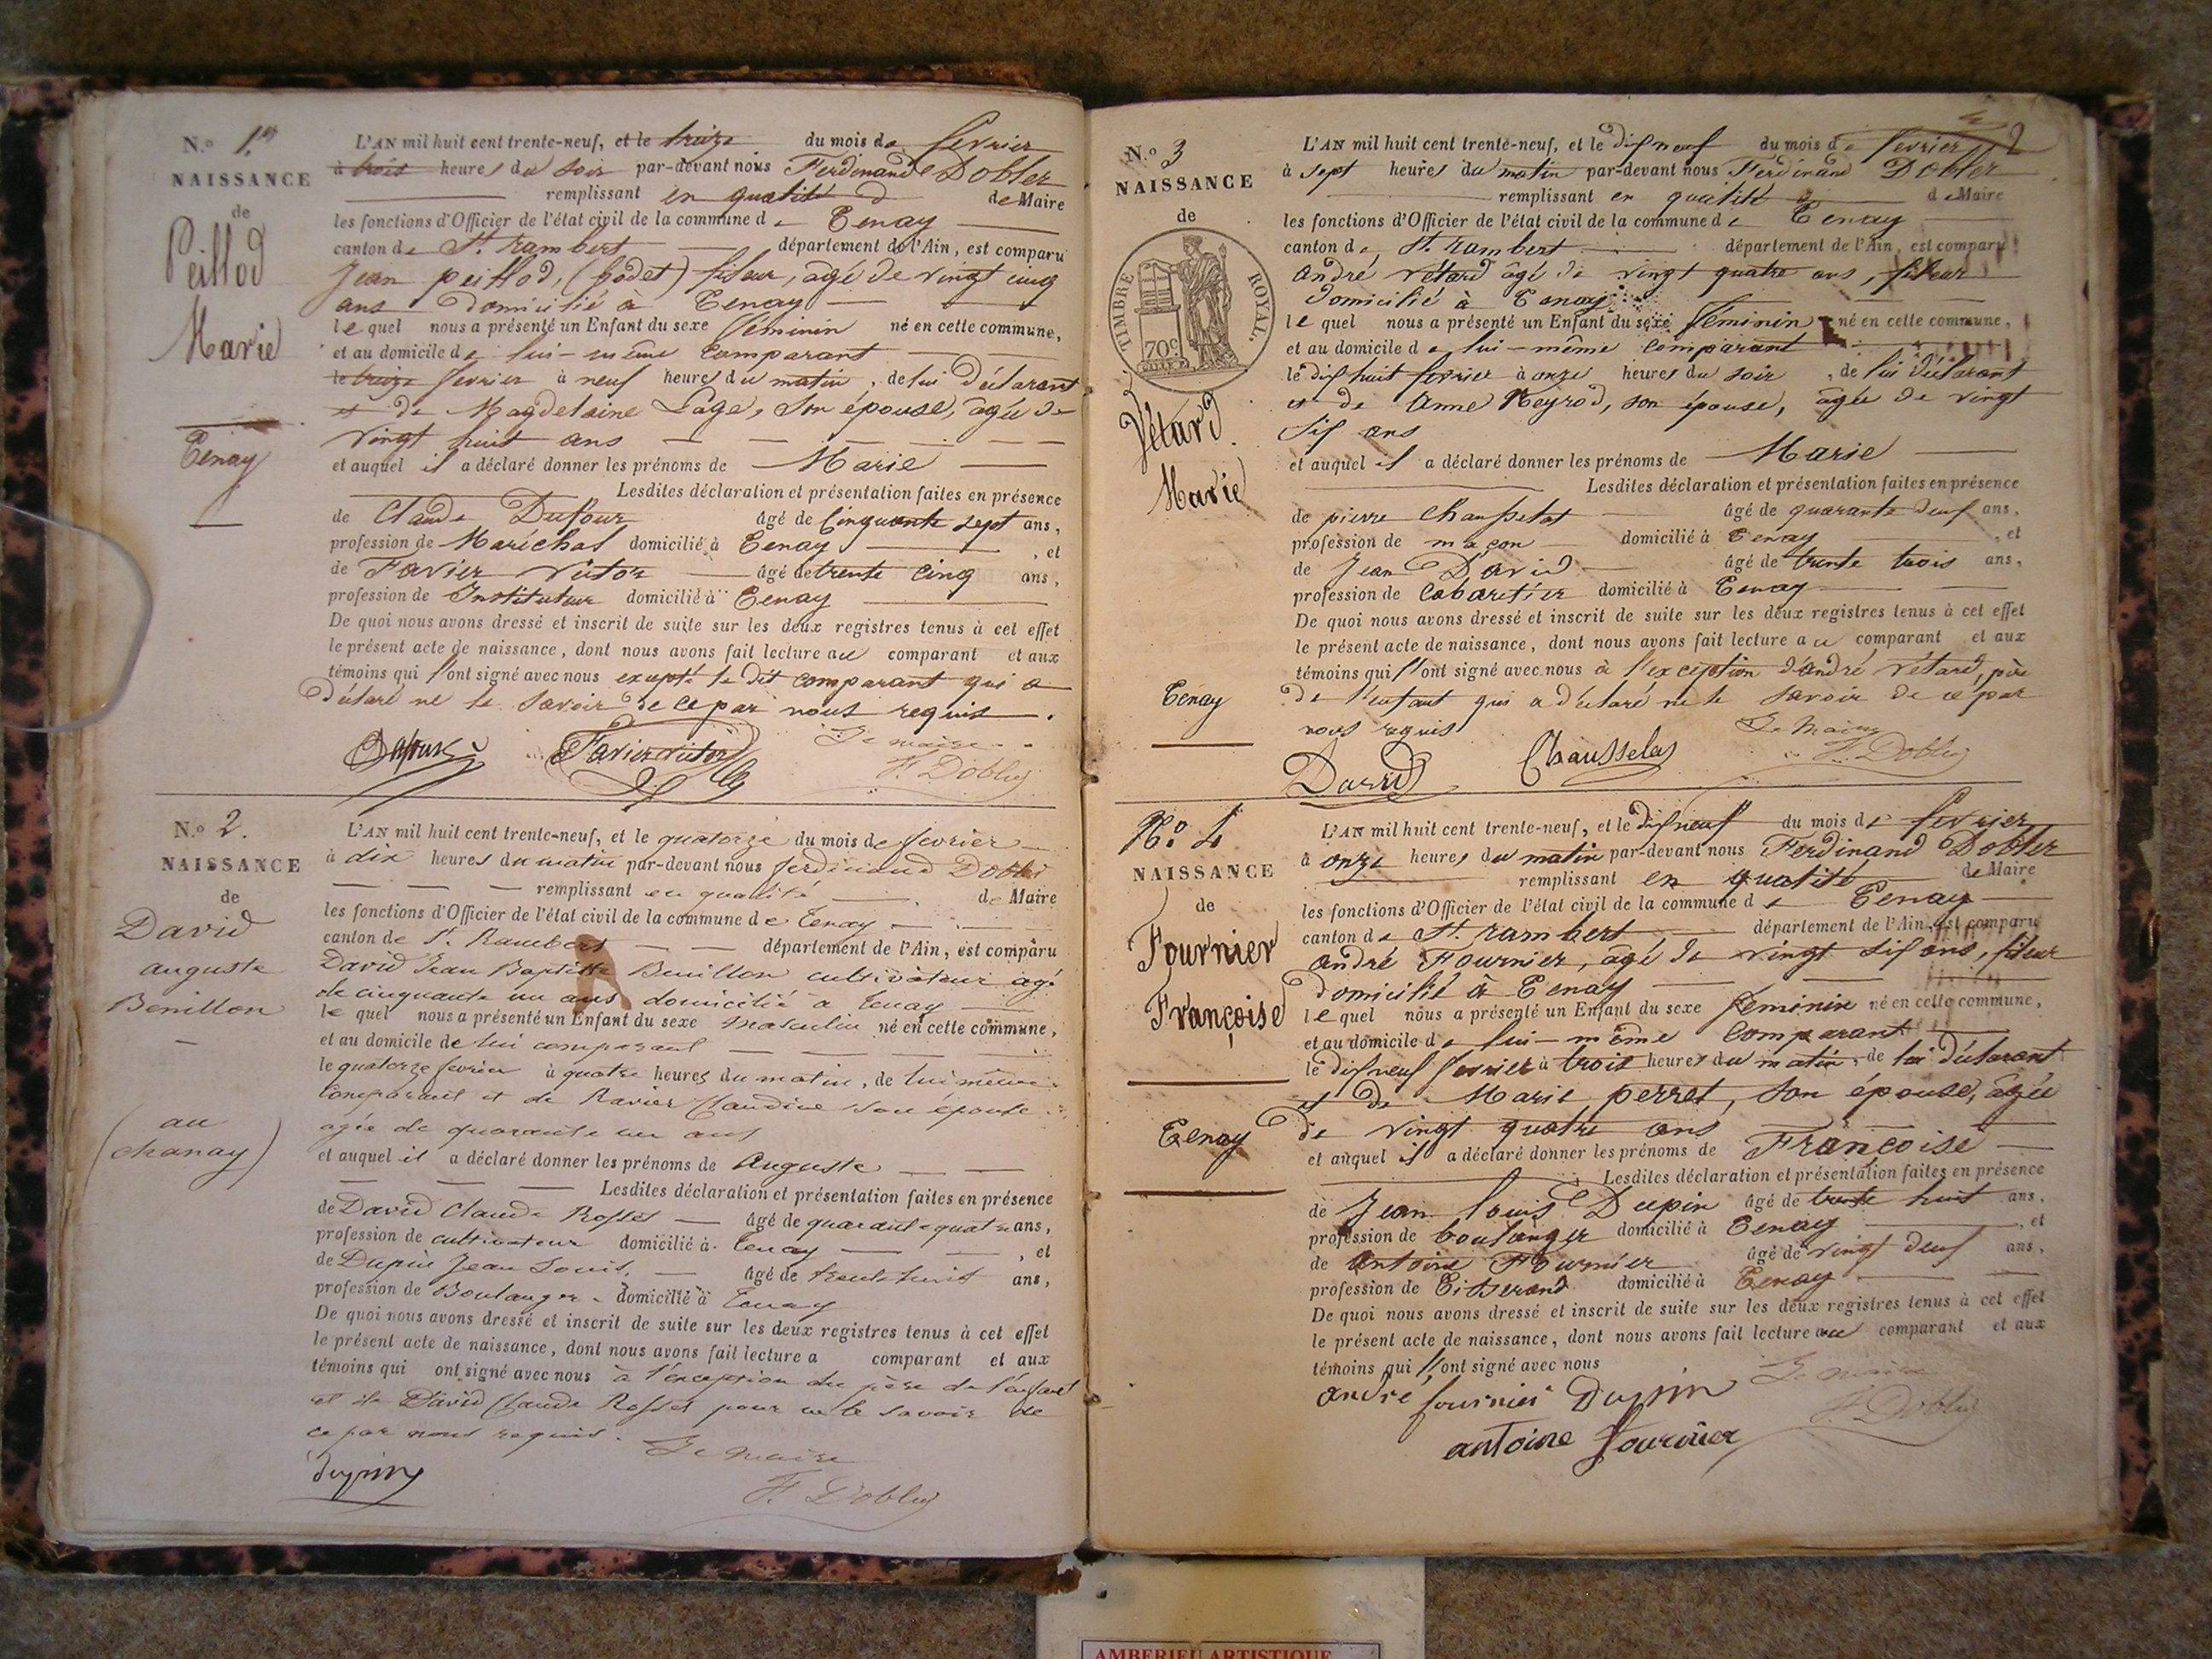 N.º 1.er
NAISSANCE
de
Peillod
Marie
Tenay
L'AN mil huit cent trente-neuf, et le treize du mois de fevrier
à trois heures du soir par-devant nous Ferdinand Dobler
remplissant en qualité d de Maire
les fonctions d'Officier de l'état civil de la commune de Tenay
canton de St. rambert département de l'Ain, est comparu
Jean peillod, (godet) fileur, âgé de vingt cinq
ans domicilié à Tenay
lequel nous a présenté un Enfant du sexe féminin né en cette commune,
et au domicile de lui-même comparant
le treize fevrier à neuf heures du matin, de lui déclarant
et de Magdelaine Page, son épouse, âgée de
vingt huit ans
et auquel il a déclaré donner les prénoms de Marie
Lesdites déclaration et présentation faites en présence
de Claude Dufour âgé de cinquante sept ans,
profession de Maréchal domicilié à Tenay, et
de Favier Victor âgé de trente cinq ans,
profession de Instituteur domicilié à Tenay
De quoi nous avons dressé et inscrit de suite sur les deux registres tenus à cet effet
le présent acte de naissance, dont nous avons fait lecture au comparant et aux
témoins qui l'ont signé avec nous excepté le dit comparant qui a
déclaré ne le savoir de ce par nous requis.
Dufour Favier victor Le maire
F. Dobler
N.º 2.
NAISSANCE
de
David
auguste
Benillon
(au
chanay)
L'AN mil huit cent trente-neuf, et le quatorze du mois de fevrier
à dix heures du matin par-devant nous ferdinand Dobler
remplissant en qualité de Maire
les fonctions d'Officier de l'état civil de la commune de Tenay
canton de St. Rambert département de l'Ain, est comparu
David Jean Baptiste Benillon cultivateur agé
de cinquante un ans domicilié a Tenay
lequel nous a présenté un Enfant du sexe masculin né en cette commune,
et au domicile de lui comparant
le quatorze fevrier à quatre heures du matin, de lui même
comparant et de Ravier Claudine son épouse
agée de quarante un ans
et auquel il a déclaré donner les prénoms de Auguste
Lesdites déclaration et présentation faites en présence
de David Claude Rosset âgé de quarante quatre ans,
profession de cultivateur domicilié à Tenay, et
de Dupin Jean Louis âgé de trente huit ans,
profession de Boulanger domicilié à Tenay
De quoi nous avons dressé et inscrit de suite sur les deux registres tenus à cet effet
le présent acte de naissance, dont nous avons fait lecture a comparant et aux
témoins qui ont signé avec nous à l'exception du père de l'enfant
et de David Claude Rosset pour ne le savoir de
ce par nous requis. Le maire
Dupin F. Dobler
2
N.º 3
NAISSANCE
de
TIMBRE ROYAL.
70c
Vétard
Marie
Tenay
L'AN mil huit cent trente-neuf, et le dix neuf du mois de fevrier
à sept heures du matin par-devant nous Ferdinand Dobler
remplissant en qualité de Maire
les fonctions d'Officier de l'état civil de la commune de Tenay
canton de St. rambert département de l'Ain, est comparu
andré vétard âgé de vingt quatre ans, fileur
domicilié à Tenay
lequel nous a présenté un Enfant du sexe féminin né en cette commune,
et au domicile de lui-même comparant
le dix huit fevrier à onze heures du soir, de lui déclarant
et de Anne Reyrod, son épouse, âgée de vingt
six ans
et auquel il a déclaré donner les prénoms de Marie
Lesdites déclaration et présentation faites en présence
de pierre Chausselat âgé de quarante deux ans,
profession de maçon domicilié à Tenay, et
de Jean David âgé de trente trois ans,
profession de cabaretier domicilié à Tenay
De quoi nous avons dressé et inscrit de suite sur les deux registres tenus à cet effet
le présent acte de naissance, dont nous avons fait lecture au comparant et aux
témoins qui l'ont signé avec nous à l'exception d'andré vétard, père
de l'enfant qui a déclaré ne le savoir de ce par
nous requis Le Maire
David Chausselas F. Dobler
N.º 4
NAISSANCE
de
Fournier
Françoise
Tenay
L'AN mil huit cent trente-neuf, et le dix neuf du mois de fevrier
à onze heures du matin par-devant nous Ferdinand Dobler
remplissant en qualité de Maire
les fonctions d'Officier de l'état civil de la commune de Tenay
canton de St. rambert département de l'Ain, est comparu
andré Fournier, âgé de vingt six ans, fileur
domicilié à Tenay
lequel nous a présenté un Enfant du sexe féminin né en cette commune,
et au domicile de lui-même comparant
le dix neuf fevrier à trois heures du matin, de lui déclarant
et de Marie perret, son épouse, âgée
de vingt quatre ans
et auquel il a déclaré donner les prénoms de Françoise
Lesdites déclaration et présentation faites en présence
de Jean louis Dupin âgé de trente huit ans,
profession de boulanger domicilié à Tenay, et
de antoine Fournier âgé de vingt deux ans,
profession de Tisserand domicilié à Tenay
De quoi nous avons dressé et inscrit de suite sur les deux registres tenus à cet effet
le présent acte de naissance, dont nous avons fait lecture au comparant et aux
témoins qui l'ont signé avec nous Le maire
andré fournier Dupin F. Dobler
antoine fournier
AMBERIEU ARTISTIQUE